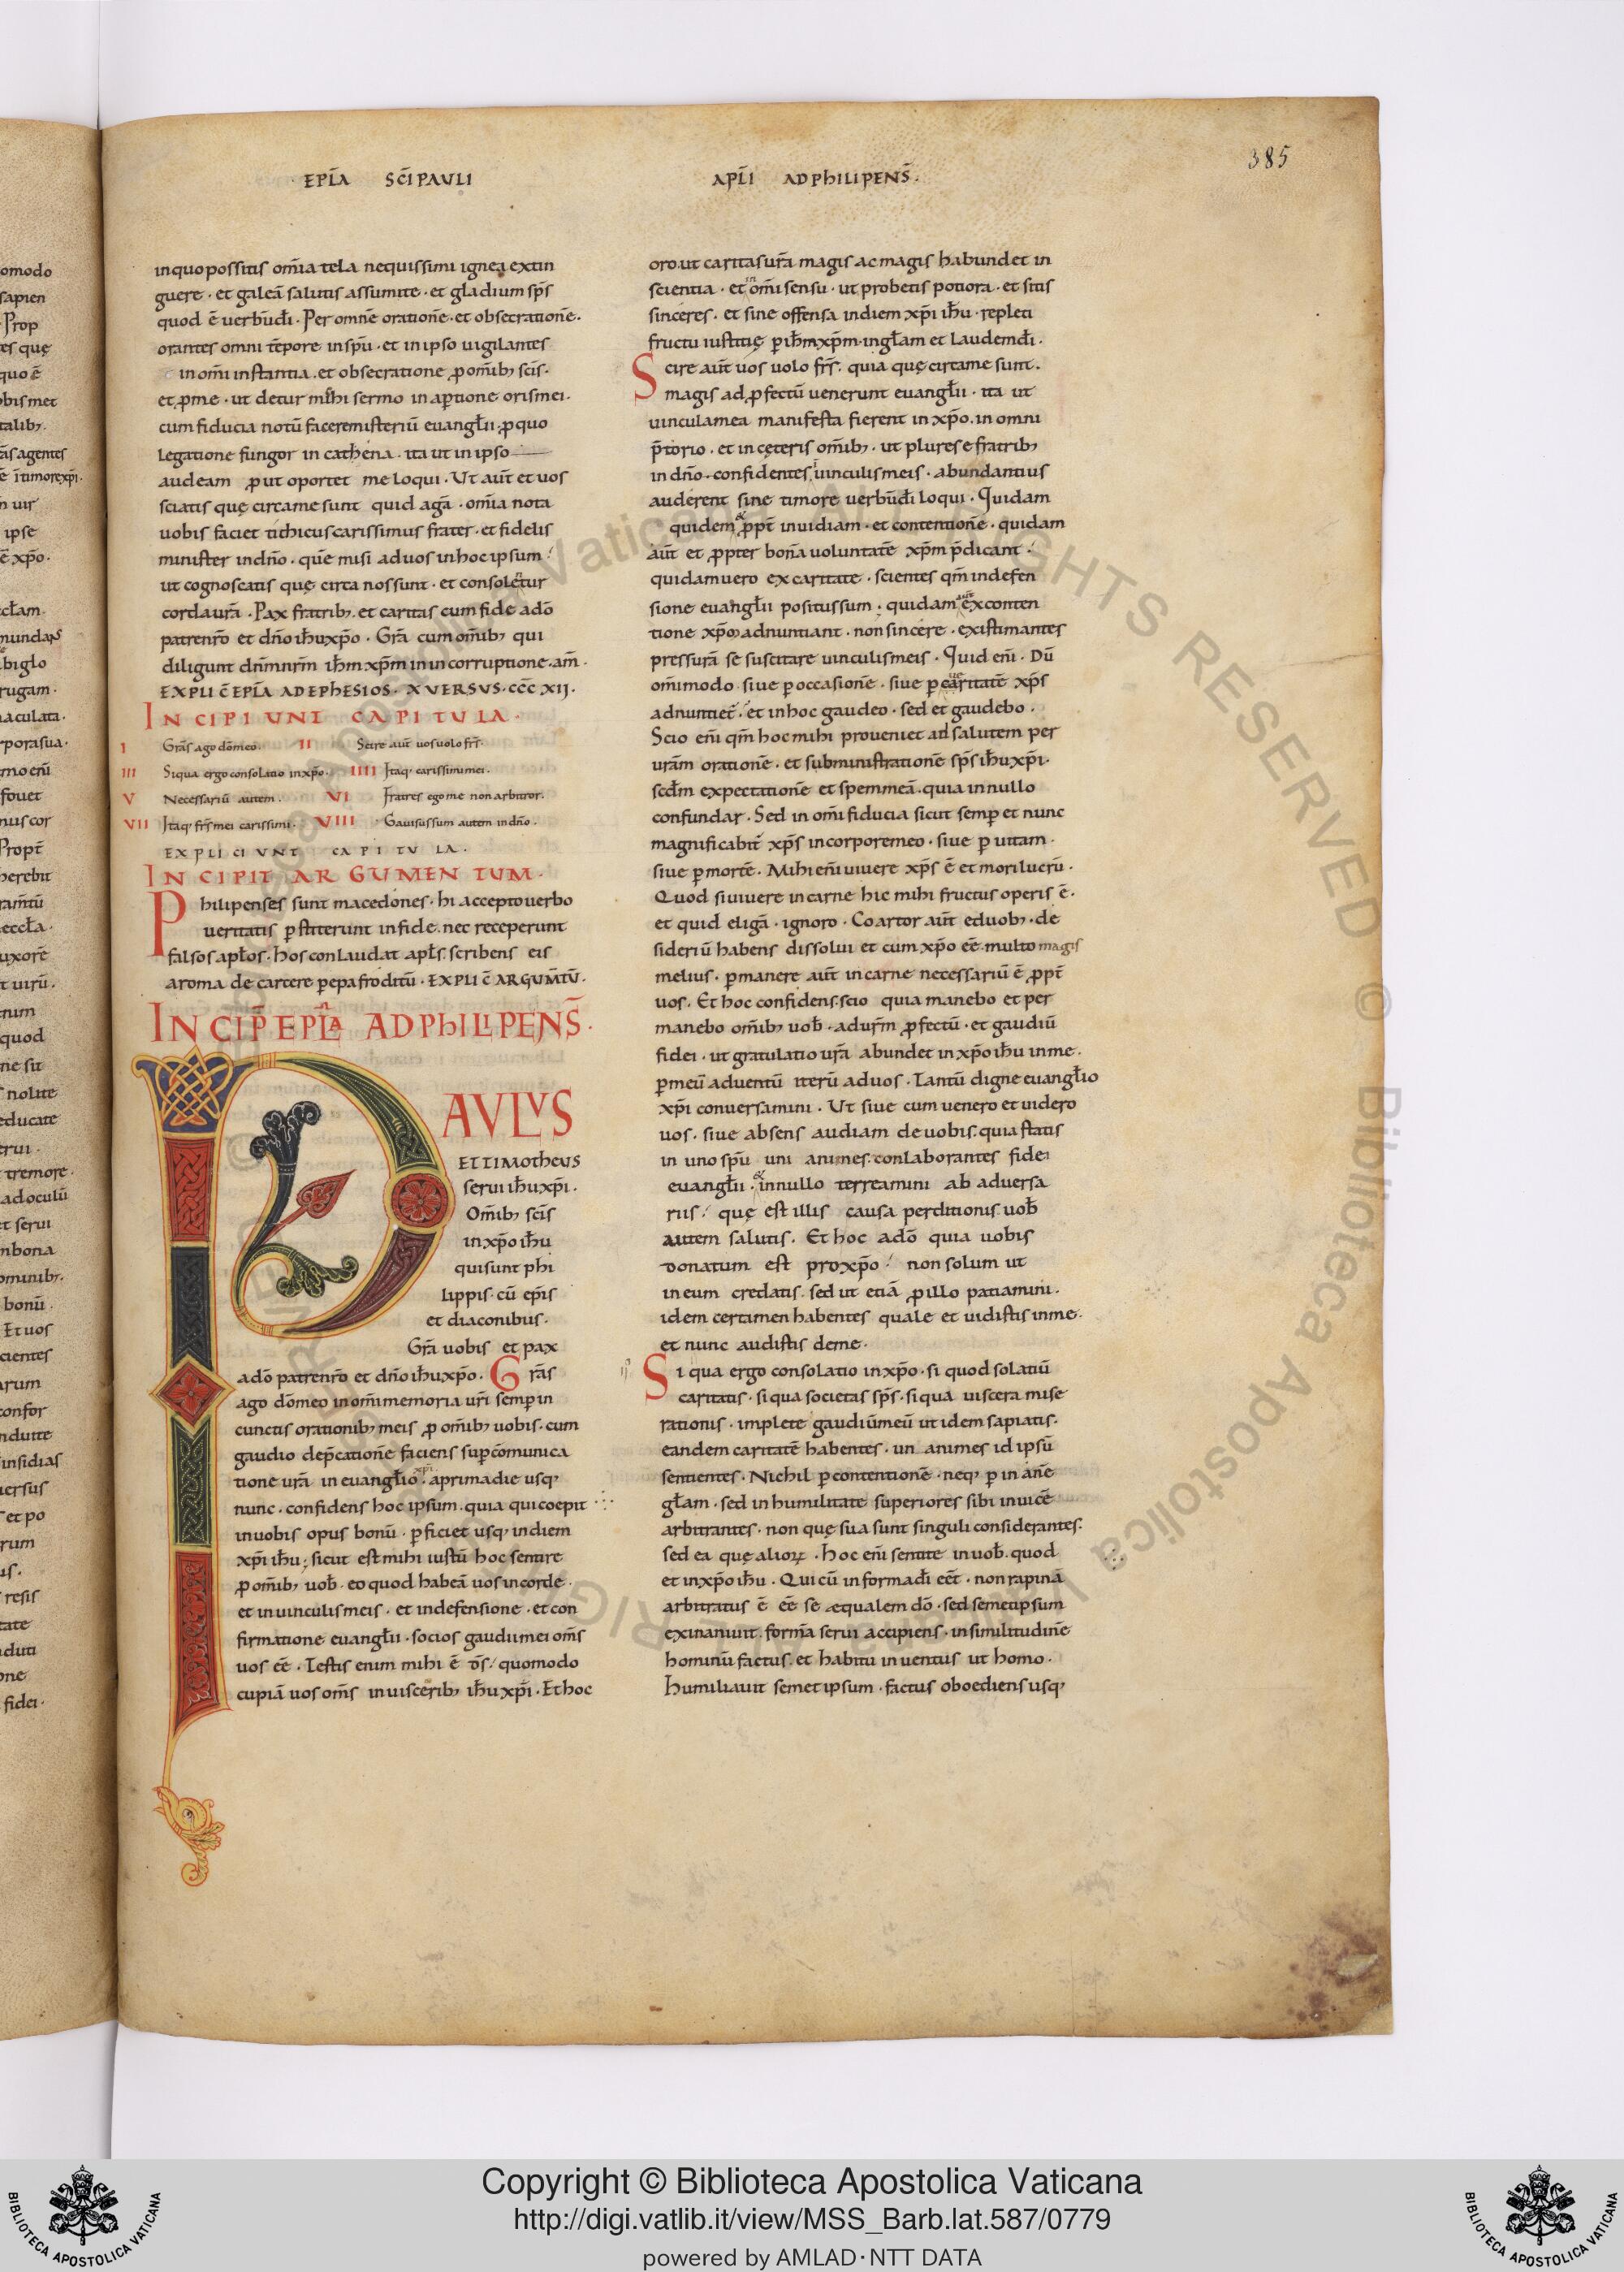 385
EPL̄A SC̄I PAULI
APL̄I AD PhILIPENS̄.
in quo possitis om̄ia tela nequissimi ignea extin
guere · et galeā salutis assumite · et gladium sp̄s
quod ē uerbūdī · Per omnē orationē · et obsecrationē ·
orantes omni tēpore in sp̄u · et in ipso uigilantes
in om̄i instantia . et obsecratione ꝓ om̄ib; sc̄is ·
et ꝓ me · ut detur mihi sermo in aꝑtione oris mei ·
cum fiducia notū facere misteriū euangłii ; ꝓ quo
legatione fungor in cathena · ita ut in ipso
audeam ꝓut oportet me loqui · Ut aūt et uos
sciatis quę circa me sunt quid agā · om̄ia nota
uobis faciet tithicus carissimus frater · et fidelis
minister in dn̄o · quē misi ad uos in hoc ipsum ·
ut cognoscatis quę circa nos sunt · et consolentur
corda ur̄a · Pax fratrib; et caritas cum fide a dō
patre nr̄o et dn̄o ih̄u xp̄o · Gr̄a cum om̄ib; qui
diligunt dn̄m nr̄m ih̄m xp̄m in incorruptione . am̄ .
EXPLIC̄ EPL̄A AD EPHESIOS · X UERSUS · CCC XII ·
INCIPIUNT CAPITULA ·
I Gr̄as ago dō meo · II Scire aūt uos uolo fr̄s ·
III Si qua ergo consolatio in xp̄o · IIII Itaq; carissimi mei ·
V Necessariū autem · VI Fratres ego me non arbitror ·
VII Itaq; fr̄s mei carissimi · VIII Gauisus sum autem in dn̄o ·
EXPLICIUNT CAPITULA ·
INCIPIT ARGUMENTUM ·
Philipenses sunt macedones · hi accepto uerbo
ueritatis ꝑstiterunt in fide . nec receperunt
falsos apłos . hos conlaudat apłs . scribens eis
a roma de carcere ꝑ epafroditū · EXPLIC̄ ARGUM̄TŪ ·
INCIP̄ EPL̄A AD PhILIPENS̄ ·
PAULUS
ET TIMOTHEUS
serui ih̄u xp̄i ·
Om̄ib; sc̄is
in xp̄o ih̄u
qui sunt phi
lippis · cū ep̄is
et diaconibus ·
Gr̄a uobis et pax
a dō patre nr̄o et dn̄o ih̄u xp̄o · Gr̄as
ago dō meo in om̄i memoria ur̄i semꝑ in
cunctis orationib; meis ꝓ om̄ib; uobis · cum
gaudio dep̄cationē faciens suꝑ cōmunica
tione ur̄a in euangłio xp̄i · a prima die usq;
nunc · confidens hoc ipsum . quia qui coepit
in uobis opus bonū · ꝑficiet usq; in diem
xp̄i ih̄u ; sicut est mihi iustū hoc sentire
ꝓ om̄ib; uob̄ · eo quod habeā uos in corde ·
et in uinculis meis · et in defensione · et con
firmatione euangłii · socios gaudii mei om̄s
uos eē · Testis enim mihi ē d̄s / quomodo
cupiā uos om̄s in uiscerib; ih̄u xp̄i · Et hoc
oro . ut caritas ur̄a magis ac magis habundet in
scientia · et in om̄i sensu · ut probetis potiora · et sitis
sinceres . et sine offensa in diem xp̄i ih̄u · repleti
fructu iustitię ꝑ ih̄m xp̄m · in głam et laudem dī ·
Scire aūt uos uolo fr̄s . quia quę circa me sunt .
magis ad ꝓfectū uenerunt euangłii · ita ut
uincula mea manifesta fierent in xp̄o . in omni
p̄torio . et in cęteris om̄ib; . ut plures e fratrib;
in dn̄o · confidentes uinculis meis · abundantius
auderent sine timore uerbū dī loqui · Quidam
quidem & ꝓpt̄ inuidiam · et contentionē · quidam
aūt et ꝓpter bonā uoluntatē xp̄m p̄dicant ·
quidam uero ex caritate · scientes qm̄ in defen
sione euangłii positus sum · quidam autē ex conten
tione xp̄m adnuntiant · non sincere · existimantes
pressurā se suscitare uinculis meis · Quid eni · Dū
om̄i modo siue ꝑ occasionē · siue ꝑ caritatē xp̄s
adnuntiet̄ . et in hoc gaudeo · sed et gaudebo ·
Scio eni qm̄ hoc mihi proueniet ad salutem per
ur̄am orationē · et subministrationē sp̄s ih̄u xp̄i ·
scd̄m expectationē et spem meā . quia in nullo
confundar · Sed in om̄i fiducia sicut semꝑ et nunc
magnificabit̄ xp̄s in corpore meo · siue ꝑ uitam ·
siue ꝑ mortē · Mihi eni uiuere xp̄s ē et mori lucrū ·
Quod si uiuere in carne hic mihi fructus operis ē ·
et quid eligā · ignoro · Coartor aūt e duob; · de
sideriū habens dissolui et cum xp̄o eē . multo magis
melius · ꝑmanere aūt in carne necessariū ē ꝓpt̄
uos . Et hoc confidens . scio quia manebo et per
manebo om̄ib; uob̄ · ad ur̄m ꝓfectū · et gaudiū
fidei · ut gratulatio ur̄a abundet in xp̄o ih̄u in me ·
ꝑ meū aduentū iterū ad uos · Tantū digne euangłio
xp̄i conuersamini · Ut siue cum uenero et uidero
uos · siue absens audiam de uobis . quia statis
in uno sp̄u uni animes . conlaborantes fidei
euangłii · & in nullo terreamini ab aduersa
riis · quę est illis causa perditionis . uob̄
autem salutis · Et hoc a dō quia uobis
donatum est pro xp̄o · non solum ut
in eum credatis . sed ut etiā ꝓ illo patiamini ·
idem certimen habentes quale et uidistis in me ·
et nunc audistis de me ·
Si qua ergo consolatio in xp̄o · si quod solatiū
caritatis · si qua societas sp̄s · si qua uiscera mise
rationis · implete gaudiū meū ut idem sapiatis ·
eandem caritatē habentes · un animes id ipsū
sentientes · Nichil ꝑ contentionē · neq; ꝑ inanē
głam · sed in humilitate superiores sibi inuicē
arbitrantes · non quę sua sunt singuli considerantes ·
sed ea quę alioꝝ · hoc eni sentite in uob̄ . quod
et in xp̄o ih̄u · Qui cū in forma dī eēt · non rapinā
arbitratus ē eē se æqualem dō · sed semetipsum
exinaniuit . formā serui accipiens · in similitudinē
hominū factus . et habitu inuentus ut homo ·
humiliauit semet ipsum · factus oboediens usq;
Copyright © Biblioteca Apostolica Vaticana
http://digi.vatlib.it/view/MSS_Barb.lat.587/0779
powered by AMLAD·NTT DATA
BIBLIOTECA APOSTOLICA VATICANA
BIBLIOTECA APOSTOLICA VATICANA